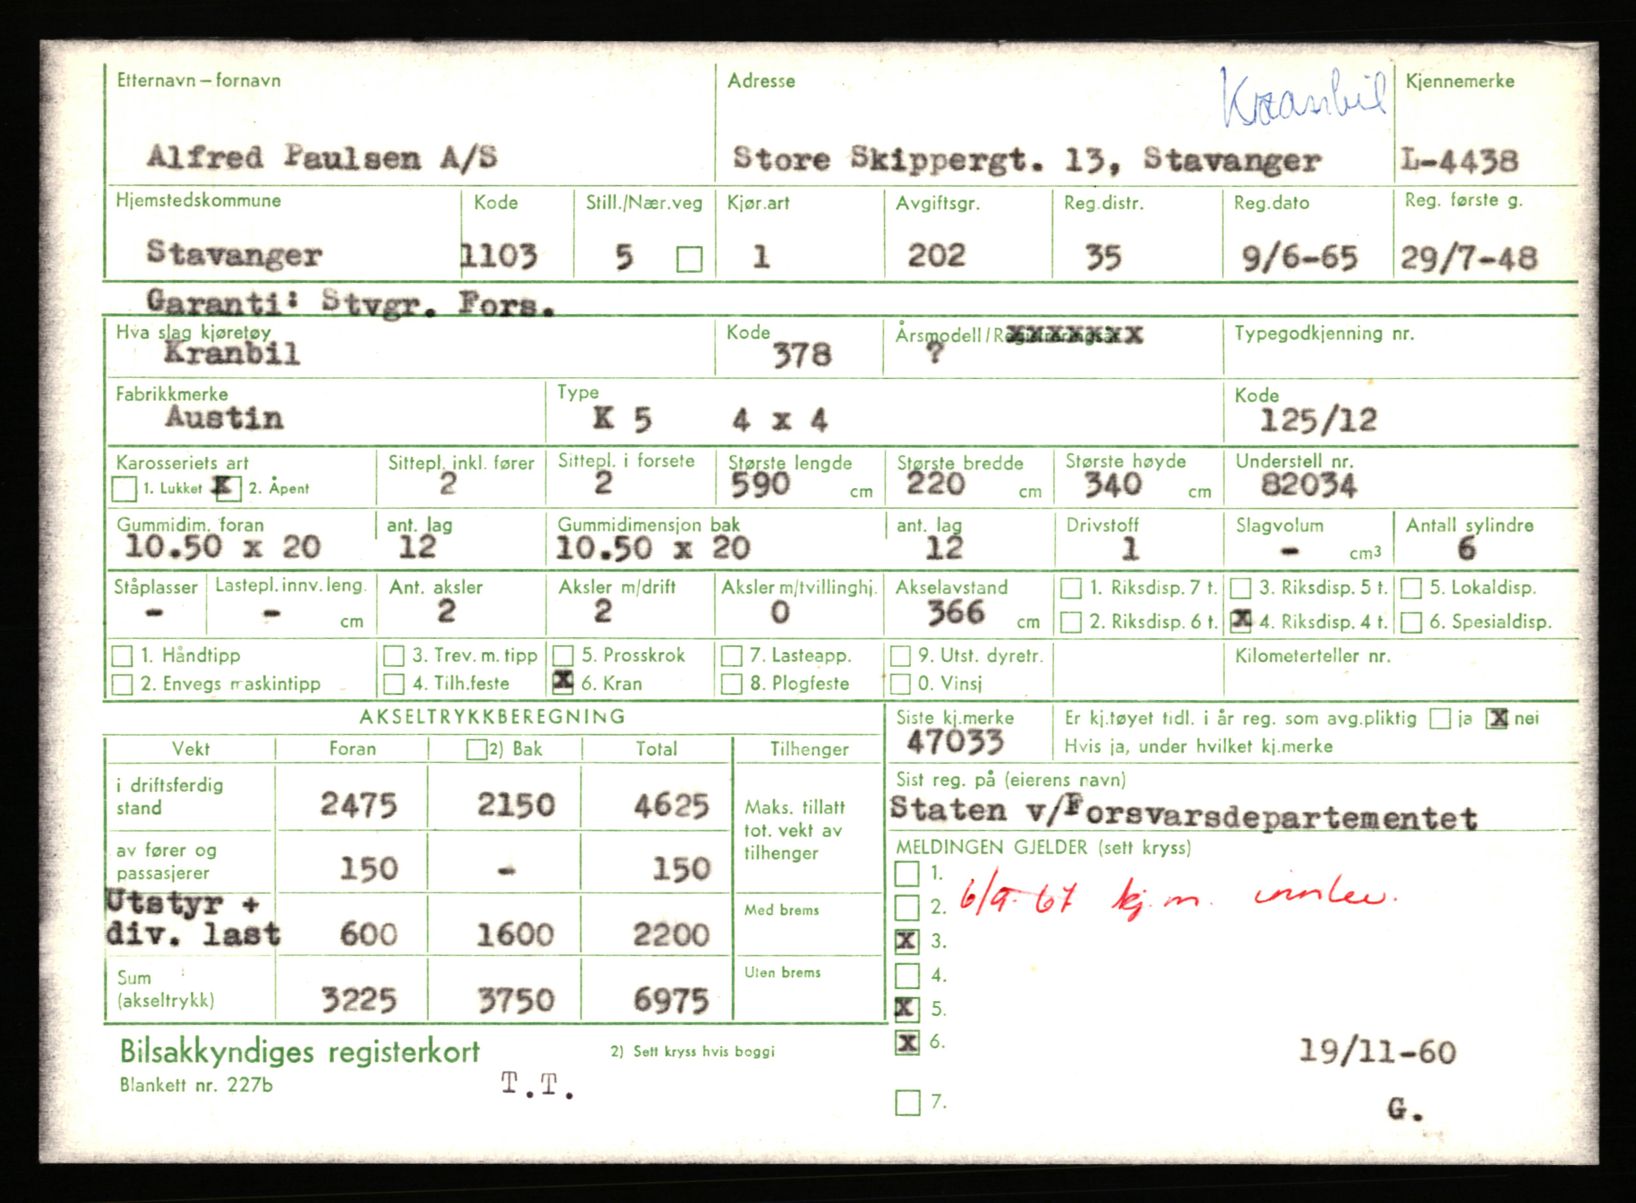 Etternavn – fornavn Adresse Kranbil Kjennemerke
Alfred Paulsen A/S Store Skippergt. 13, Stavanger L-4438
Hjemstedskommune Kode Still./Nær.veg Kjør.art Avgiftsgr. Reg.distr. Reg.dato Reg. første g.
Stavanger 1103 5 1 202 35 9/6-65 29/7-48
Garanti: Stvgr. Fors.
Hva slag kjøretøy Kode Årsmodell/Registreringsår Typegodkjenning nr.
Kranbil 378 ?
Fabrikkmerke Type Kode
Austin K 5 4 x 4 125/12
Karosseriets art Sittepl. inkl. fører Sittepl. i forsete Største lengde Største bredde Største høyde Understell nr.
1. Lukket X 2. Åpent 2 2 590 cm 220 cm 340 cm 82034
Gummidim. foran ant. lag Gummidimensjon bak ant. lag Drivstoff Slagvolum Antall sylindre
10.50 x 20 12 10.50 x 20 12 1 - cm3 6
Ståplasser Lastepl. innv. leng. Ant. aksler Aksler m/drift Aksler m/tvillinghj. Akselavstand 1. Riksdisp. 7 t. 3. Riksdisp. 5 t. 5. Lokaldisp.
- - cm 2 2 0 366 cm 2. Riksdisp. 6 t. X 4. Riksdisp. 4 t. 6. Spesialdisp.
1. Håndtipp 3. Trev. m. tipp 5. Prosskrok 7. Lasteapp. 9. Utst. dyretr. Kilometerteller nr.
2. Envegs maskintipp 4. Tilh.feste X 6. Kran 8. Plogfeste 0. Vinsj
AKSELTRYKKBEREGNING Siste kj.merke Er kj.tøyet tidl. i år reg. som avg.pliktig ja X nei
Vekt Foran 2) Bak Total Tilhenger 47033 Hvis ja, under hvilket kj.merke
i driftsferdig stand 2475 2150 4625 Maks. tillatt tot. vekt av tilhenger Sist reg. på (eierens navn)
Staten v/Forsvarsdepartementet
av fører og passasjerer 150 - 150 MELDINGEN GJELDER (sett kryss)
1.
Utstyr + Med brems 2. 6/9-67 kj.m. innlev.
div. last 600 1600 2200 X 3.
Sum Uten brems 4.
(akseltrykk) 3225 3750 6975 X 5.
Bilsakkyndiges registerkort 2) Sett kryss hvis boggi X 6. 19/11-60
Blankett nr. 227b T.T. 7. G.